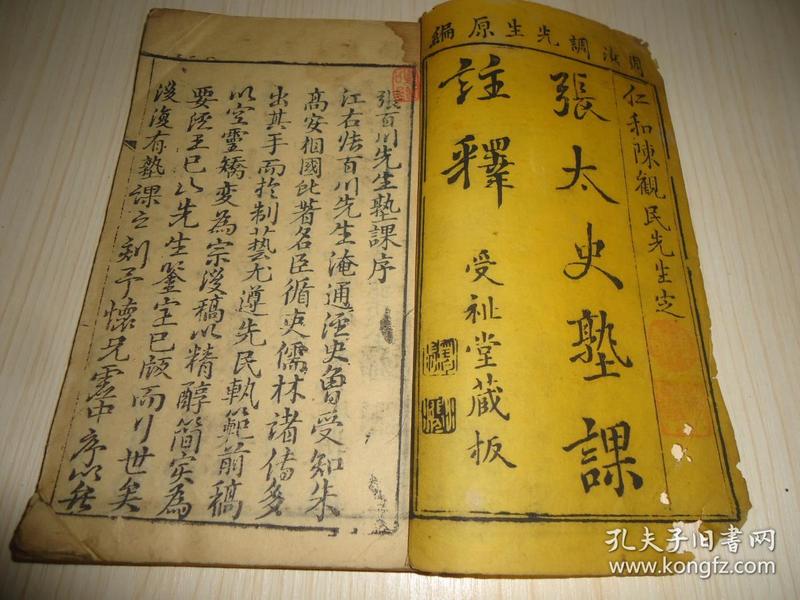 調先生原編
仁和陳觀民先生定
張太史塾課
註釋
受祉堂藏板
張百川先生塾課序
江右張百川先生淹通經史曾受知朱
高安相國此著名臣循吏儒林諸傳多
出其手而於制藝尤遵先民軌範前稿
以空靈矯變為宗後稿以精醇簡實為
要經王巳山先生鑒定已版而行世矣
後復有塾課之刻予懷兄雲中序以發
孔夫子旧书网
www.kongfz.com